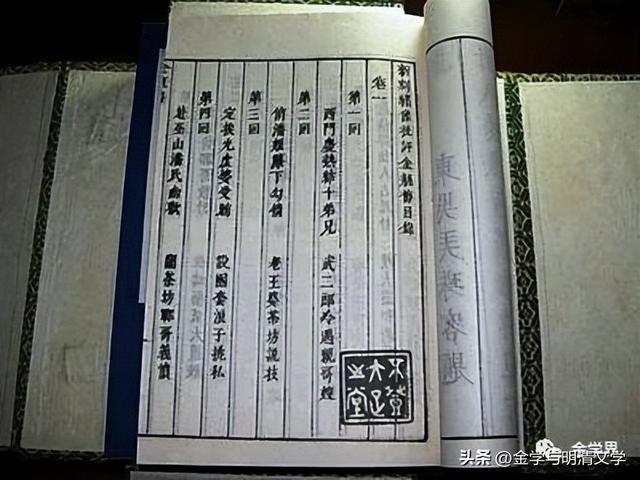 新刻繡像批評金瓶梅目錄
卷一
第一回
西門慶熱結十弟兄 武二郎冷遇親哥嫂
第二回
俏潘娘簾下勾情 老王婆茶坊說技
第三回
定挨光虔婆受賄 設圈套浪子挑私
第四回
赴巫山潘氏幽歡 鬧茶坊鄆哥義憤
不登
大雅
之堂
金学界
头条 @金学与明清文学